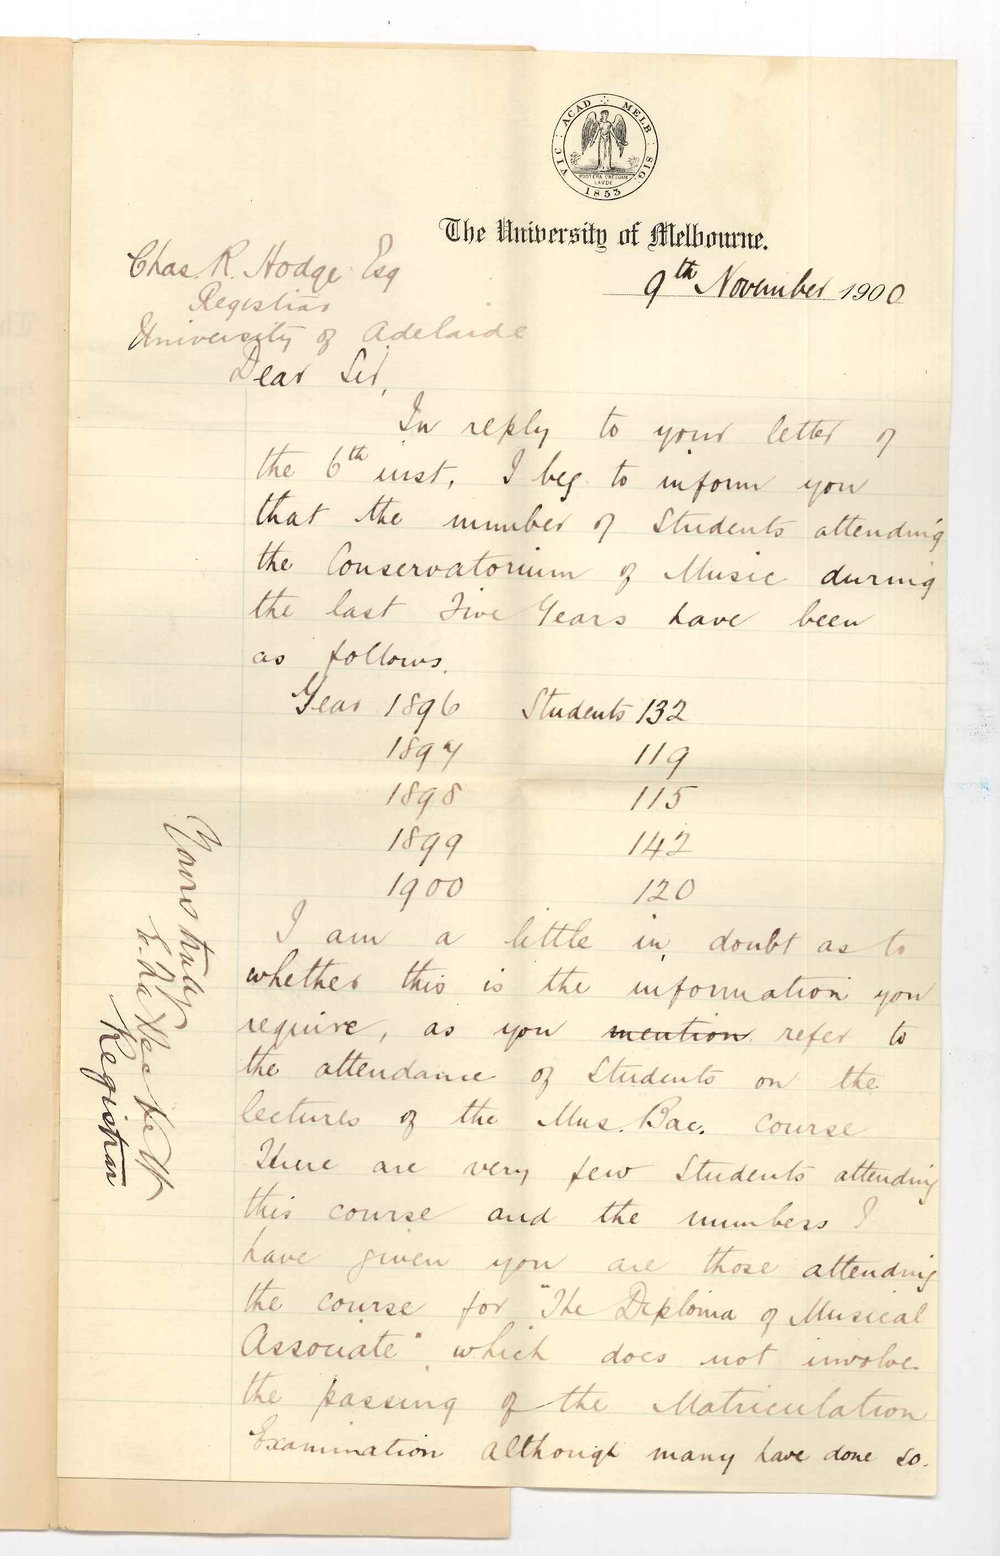 VIC : ACAD : MELB : SIG.
POSTERA CRESCAM
LAVDE
1853
The University of Melbourne.
9th November 1900
Chas. R. Hodge Esq
Registrar
University of Adelaide
Dear Sir,
In reply to your letter of
the 6th inst, I beg to inform you
that the number of Students attending
the Conservatorium of Music during
the last Five Years have been
as follows.
Year 1896 Students 132
1897 119
1898 115
1899 142
1900 120
I am a little in doubt as to
whether this is the information you
require, as you mention refer to
the attendance of Students on the
lectures of the Mus. Bac. course
There are very few Students attending
this course and the numbers I
have given you are those attending
the course for "The Diploma of Musical
Associate" which does not involve
the passing of the Matriculation
Examination although many have done so.
Yours truly
Registrar